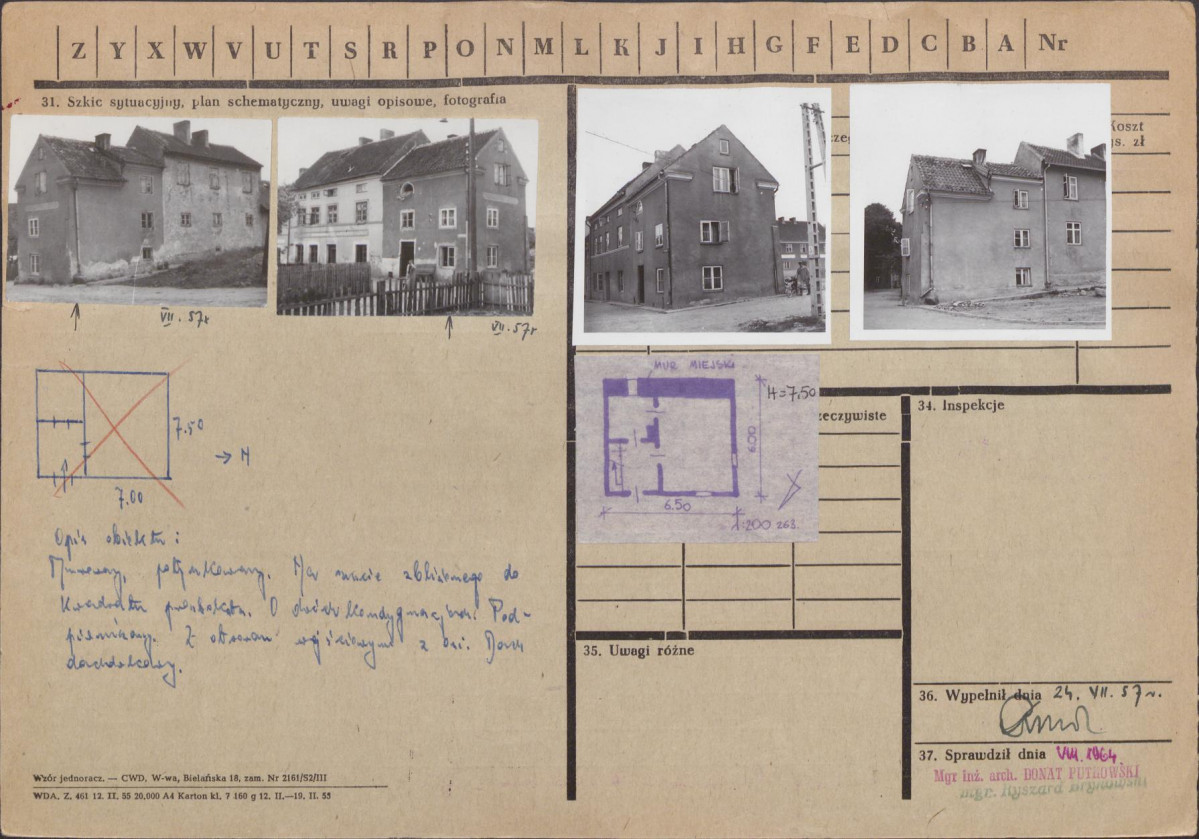 Z Y X W V U T S R P O N M L K J I H G F E D C B A Nr
31. Szkic sytuacyjny, plan schematyczny, uwagi opisowe, fotografia
Koszt
ys. zł
VII. 57r
VII. 57r
MUR MIEJSKI
H=7,50
6.00
6.50
1:200
7.50
→ N
7.00
zeczywiste
34. Inspekcje
Opis obiektu:
Murowany, potynkowany. Na rzucie zbliżonego do
kwadratu prostokąta. O dwóch kondygnacjach. Pod-
piwniczony. Z otworem wejściowym z osi. Dach
dachówkowy.
35. Uwagi różne
36. Wypełnił dnia 24. VII. 57r.
37. Sprawdził dnia VIII. 1964
Mgr inż. arch. DONAT PUTKOWSKI
mgr. Ryszard Brykowski
Wzór jednoracz. — CWD, W-wa, Bielańska 18, zam. Nr 2161/52/III
WDA. Z. 461 12. II. 55 20,000 A4 Karton kl. 7 160 g 12. II.—19. II. 55